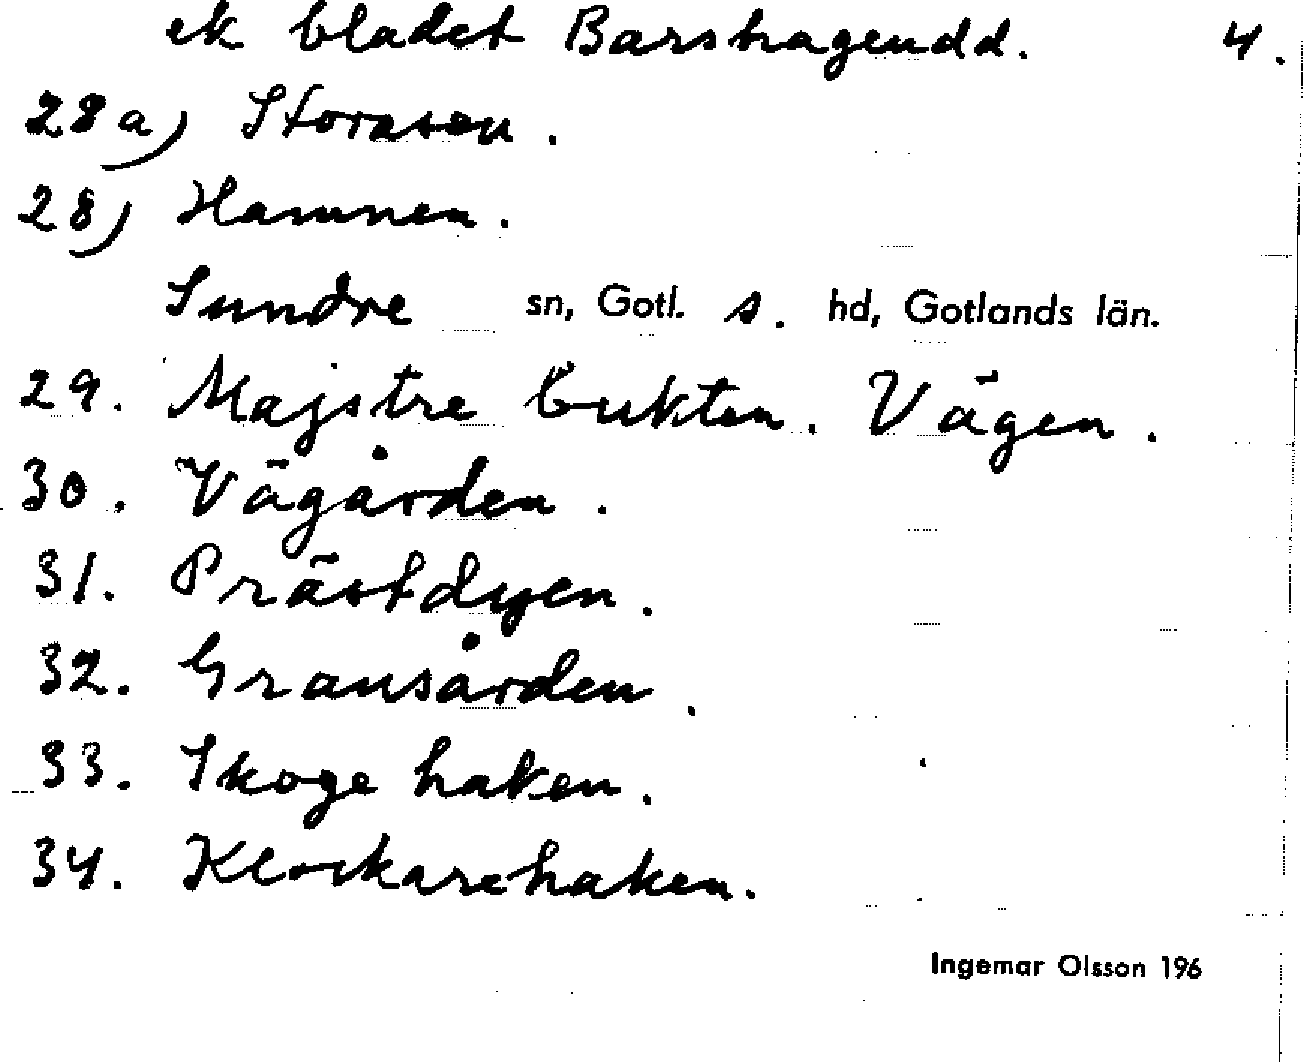 ek bladet Barshagendd. 4.
28a) Storason.
28) Hamnen.
Sundre sn, Gotl. s. hd, Gotlands län.
29. Majstre bukten. Vägen.
30. Vägården.
31. Prästdyen.
32. Gransården.
33. Skoge haken.
34. Klockarehaken.
Ingemar Olsson 196